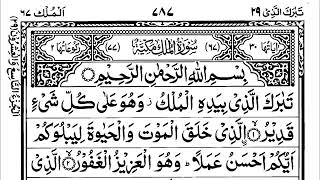 تبٰرك الذی ٢٩ ٧٨٧ الملك ٦٧
اٰیاتها ٣٠ (٦٧) سُوْرَةُ الْمُلْكِ مَكِّيَّةٌ (٧٧) رکوعاتها ٢
بِسْمِ اللّٰهِ الرَّحْمٰنِ الرَّحِيْمِ
تَبٰرَكَ الَّذِيْ بِيَدِهِ الْمُلْكُ ز وَهُوَ عَلٰى كُلِّ شَيْءٍ
قَدِيْرٌ ۙ﴿١﴾ الَّذِيْ خَلَقَ الْمَوْتَ وَالْحَيٰوةَ لِيَبْلُوَكُمْ
اَيُّكُمْ اَحْسَنُ عَمَلًا ؕ وَهُوَ الْعَزِيْزُ الْغَفُوْرُ ۙ﴿٢﴾ الَّذِيْ